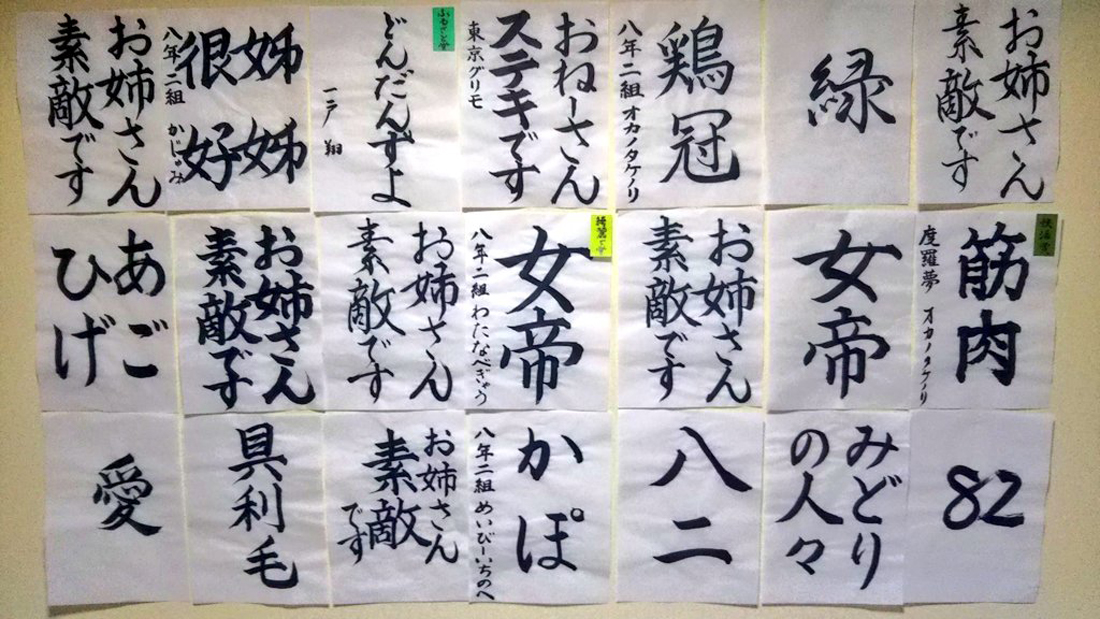 お姉さん
素敵です
姊姊
很好
八年二組 かじゅみ
どんだんずよ
一戸 翔
おねーさん
ステキです
東京グリモ
鶏冠
八年二組 オカノタケノリ
緑
お姉さん
素敵です
あご
ひげ
お姉さん
素敵です
お姉さん
素敵です
女帝
八年二組 わたなべぎゅう
お姉さん
素敵です
女帝
筋肉
度羅夢 オカノタケノリ
愛
具利毛
お姉さん
素敵
です
かぽ
八年二組 めいびーいちのへ
八二
みどり
の人々
82